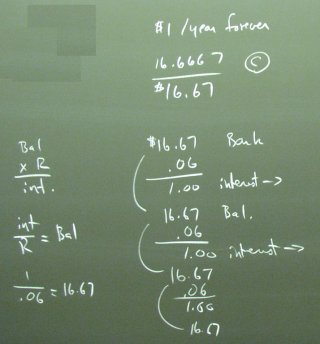 $1 /year forever
16.6667 C
$16.67
Bal
x R
int.
int
R
= Bal
1
.06
= 16.67
$16.67 Bank
.06
1.00 interest →
16.67 Bal.
.06
1.00 interest →
16.67
.06
1.00
16.67